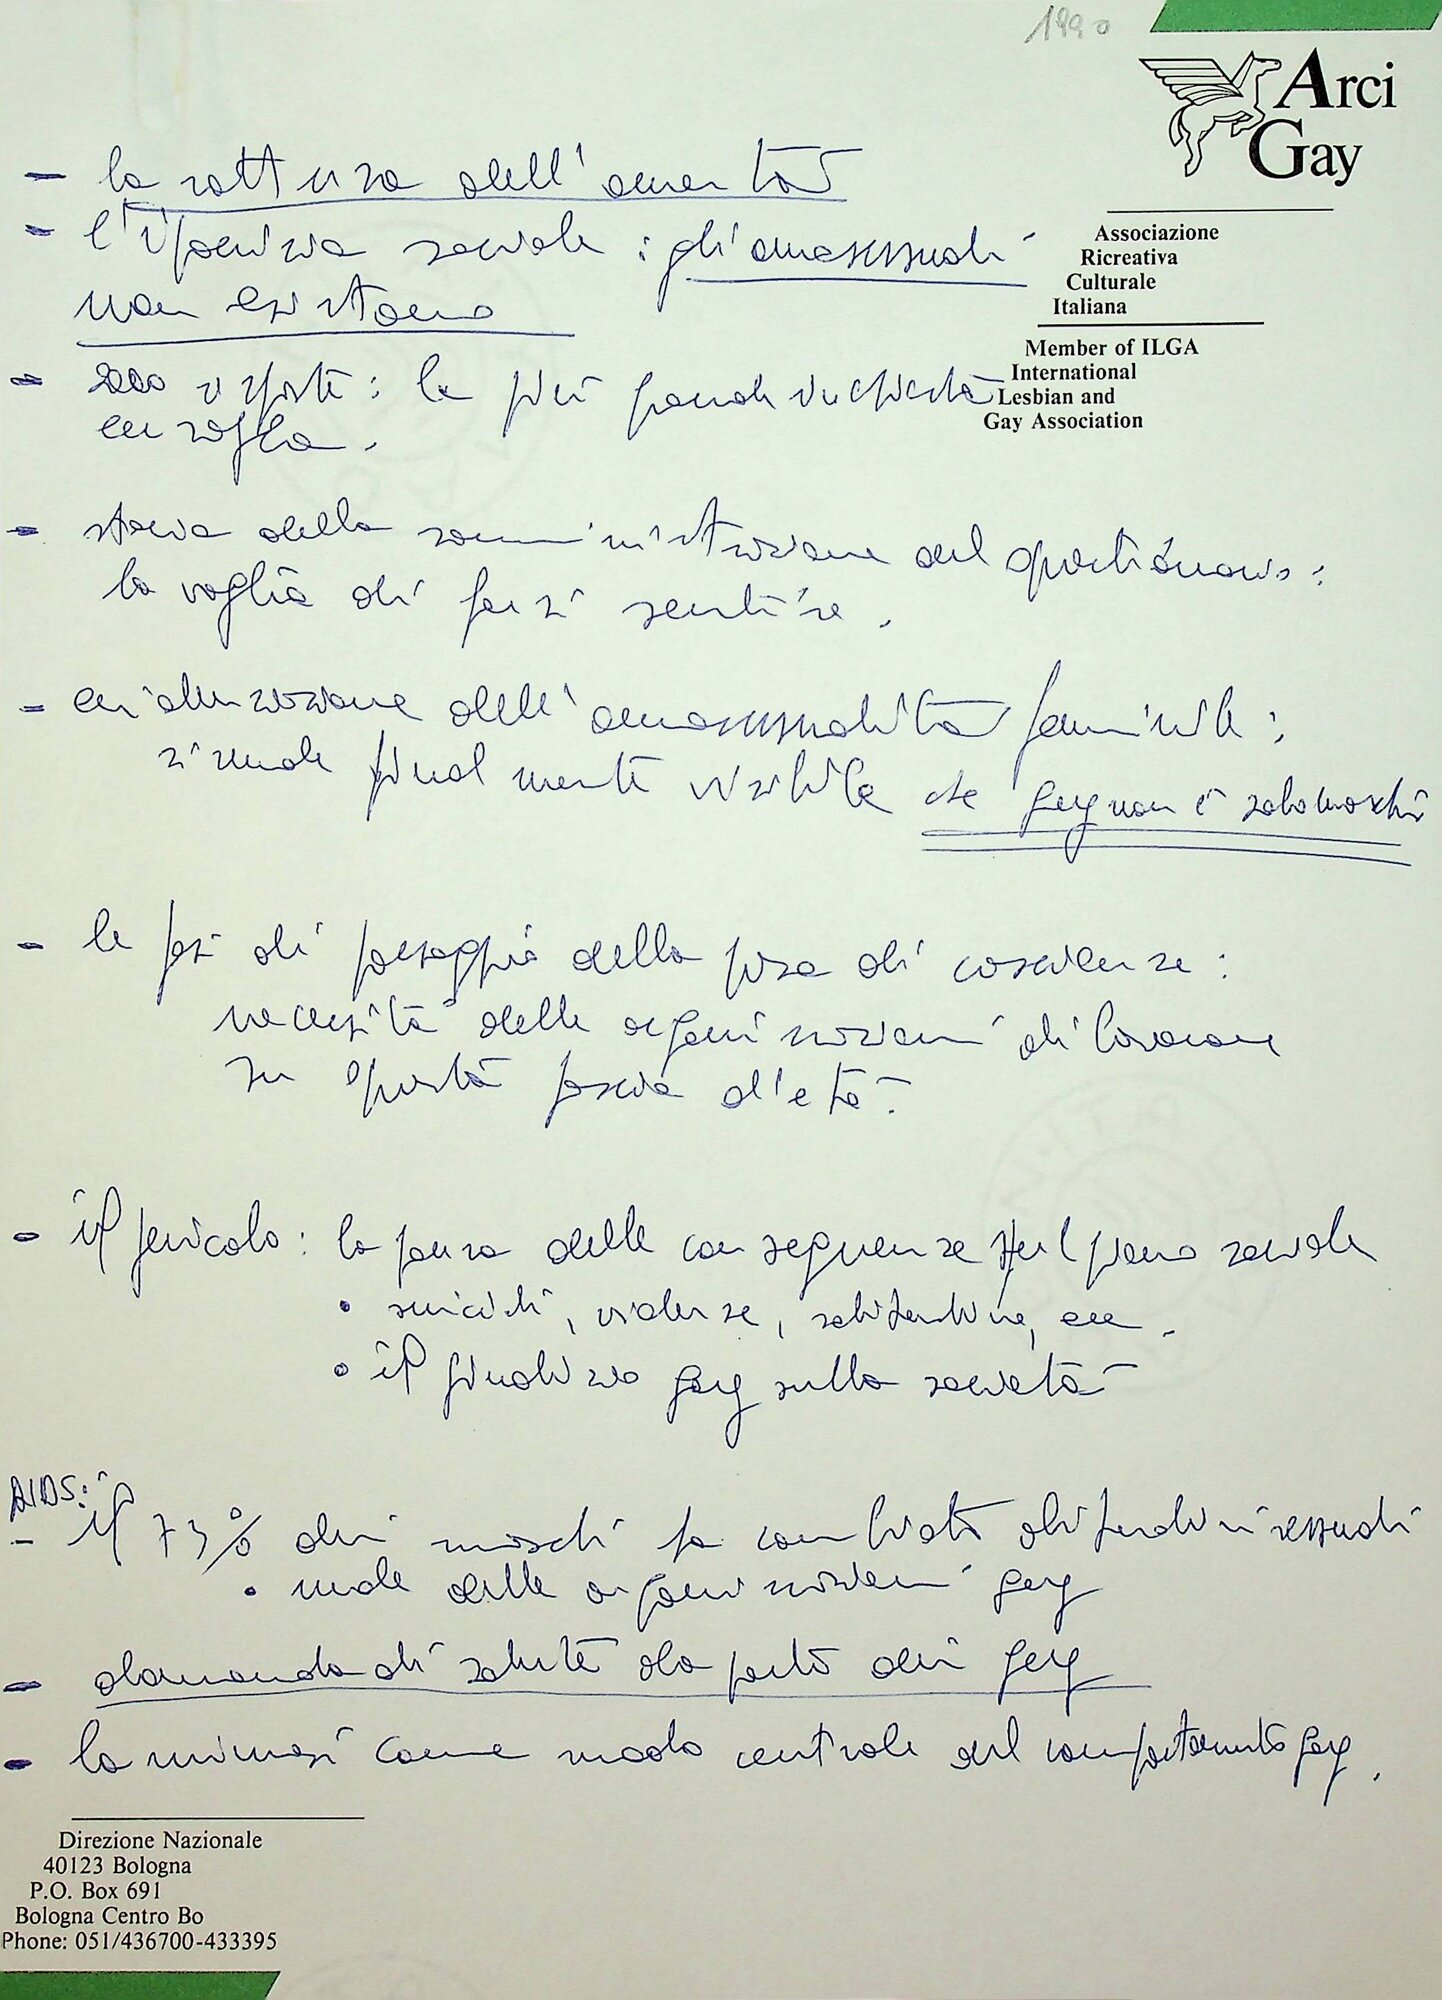 1990
Arci
Gay
Associazione
Ricreativa
Culturale
Italiana
Member of ILGA
International
Lesbian and
Gay Association
- la rottura dell'omertà
- l'ipocrisia sociale : gli omosessuali
non esistono
- 2000 risposte : la più grande inchiesta
europea.
- storia della somministrazione del questionario :
la voglia di farsi sentire.
- evidenziazione dell'omosessualità femminile :
si rende finalmente visibile che gay non è solo maschi
- le fasi di passaggio della presa di coscienza :
necessità delle organizzazioni di lavorare
su questa fascia d'età.
- il pericolo : la paura delle conseguenze sul piano sociale
• suicidi, violenze, solitudine, ecc.
• il giudizio gay sulla società
AIDS :
- il 73% dei maschi ha cambiato abitudini sessuali
• ruolo delle organizzazioni gay
- domanda di salute da parte dei gay
- la mimesi come modo centrale del comportamento gay.
Direzione Nazionale
40123 Bologna
P.O. Box 691
Bologna Centro Bo
Phone: 051/436700-433395